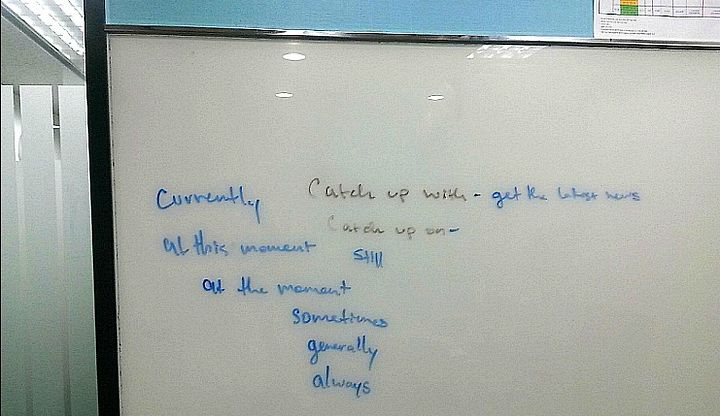 Currently
Catch up with - get the latest news
Catch up on -
at this moment
still
at the moment
sometimes
generally
always